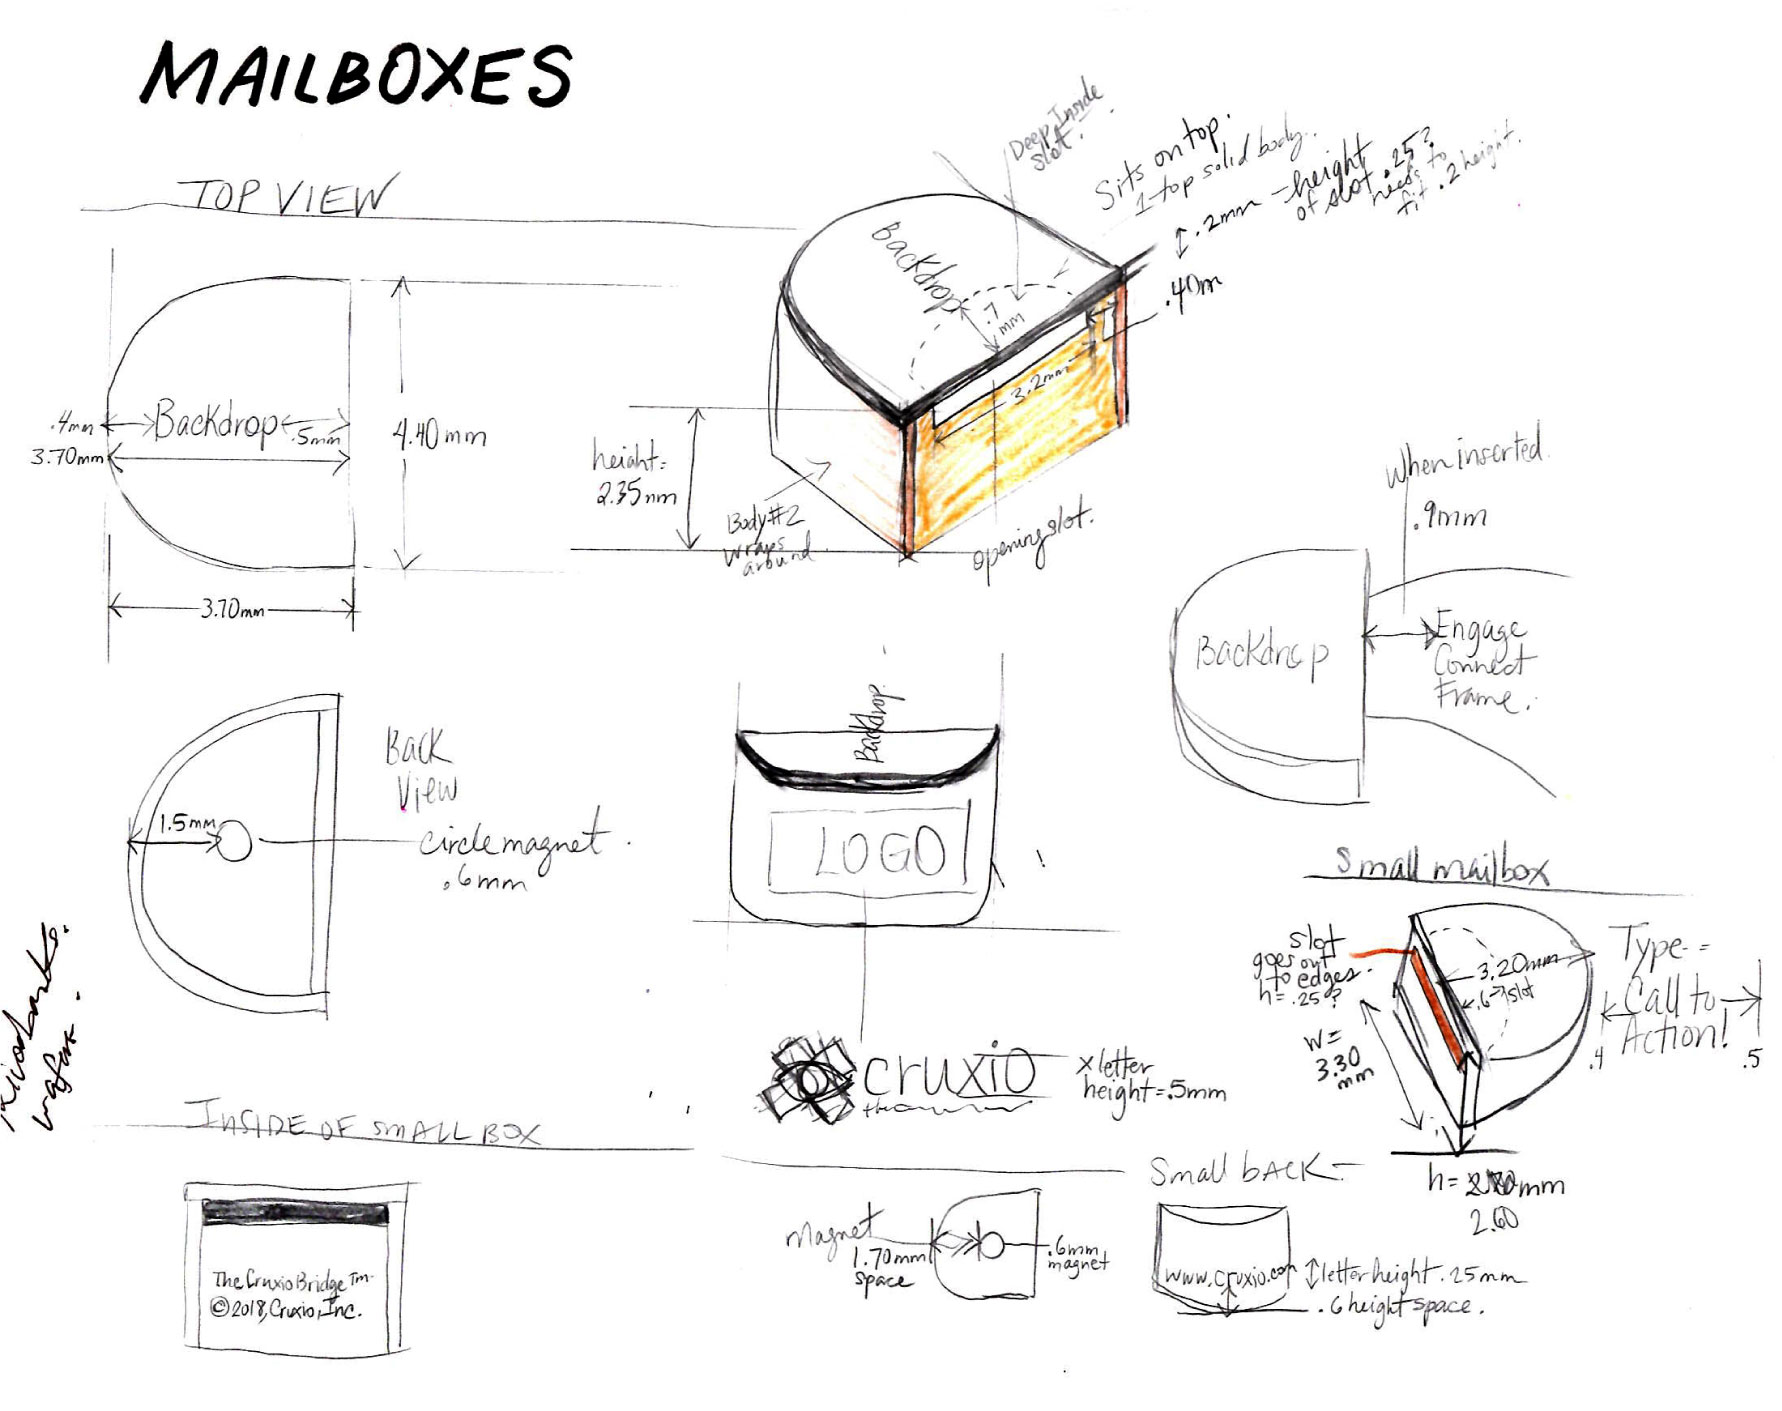 MAILBOXES
TOP VIEW
Deep Inside
slot.
Sits on top.
1-top solid body.
.2mm - height
of slot .25?
needs to
fit .2 height.
.40m
Backdrop
.7
mm
3.2mm
height=
2.35mm
Body #2
wraps
around
opening slot.
.4mm
Backdrop
.5mm
3.70mm
4.40mm
3.70mm
When inserted.
.9mm
Backdrop
Engage
Connect
Frame.
Back
View
1.5mm
circle magnet
.6mm
Backdrop
LOGO
cruxio
x letter
height=.5mm
Small mailbox
slot
goes out
to edges.
h=.25?
3.20mm
.6 slot
W=
3.30
mm
Type-=
Call to
Action!
.4
.5
h= mm
2.60
INSIDE OF SMALL BOX
The Cruxio Bridge TM
©2018, Cruxio, Inc.
Magnet
1.70mm
space
.6mm
magnet
Small bACK-
www.cruxio.com
letter height .25mm
.6 height space.